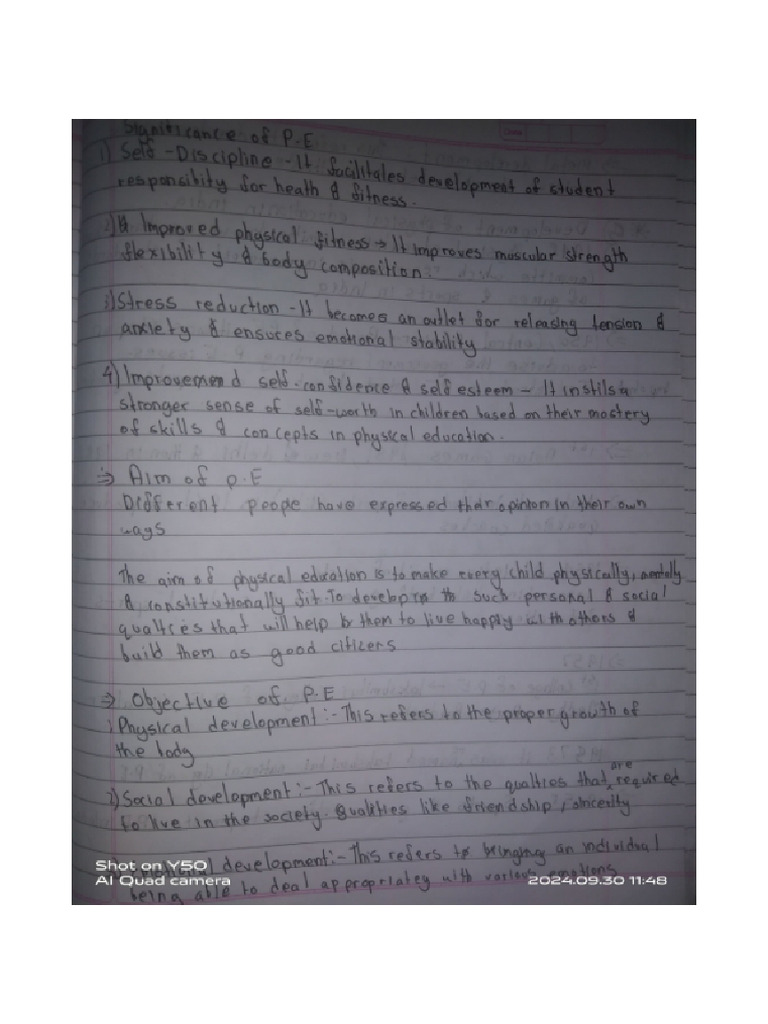 Significance of P.E
1) Self-Discipline - It facilitales development of student
responsibity for heath & fitness.
2) Improved physical fitness → It improves muscular strength
flexibility & body composition.
3) Stress reduction - It becomes an outlet for releasing tension &
anxiety & ensures emotional stability
4) Improvemend self-confidence & self esteem - It instils a
stronger sense of self-worth in children based on their mastery
of skills & concepts in physical education.
⇒ Aim of P.E
Different people have expressed their opinion in their own
ways
The aim of physical education is to make every child physically, mentally
& constitutionally fit. To develop such personal & social
qualties that will help them to live happly with others &
build them as good citizens
⇒ Objective of P.E
1) Physical development :- This refers to the proper growth of
the body
2) Social development :- This refers to the qualties that are required
to live in the society. Qualities like friendship, sincerity
Emotional development :- This refers to bringing an individual
being able to deal appropriatey with various emotions
Shot on Y50
AI Quad camera
2024.09.30 11:48